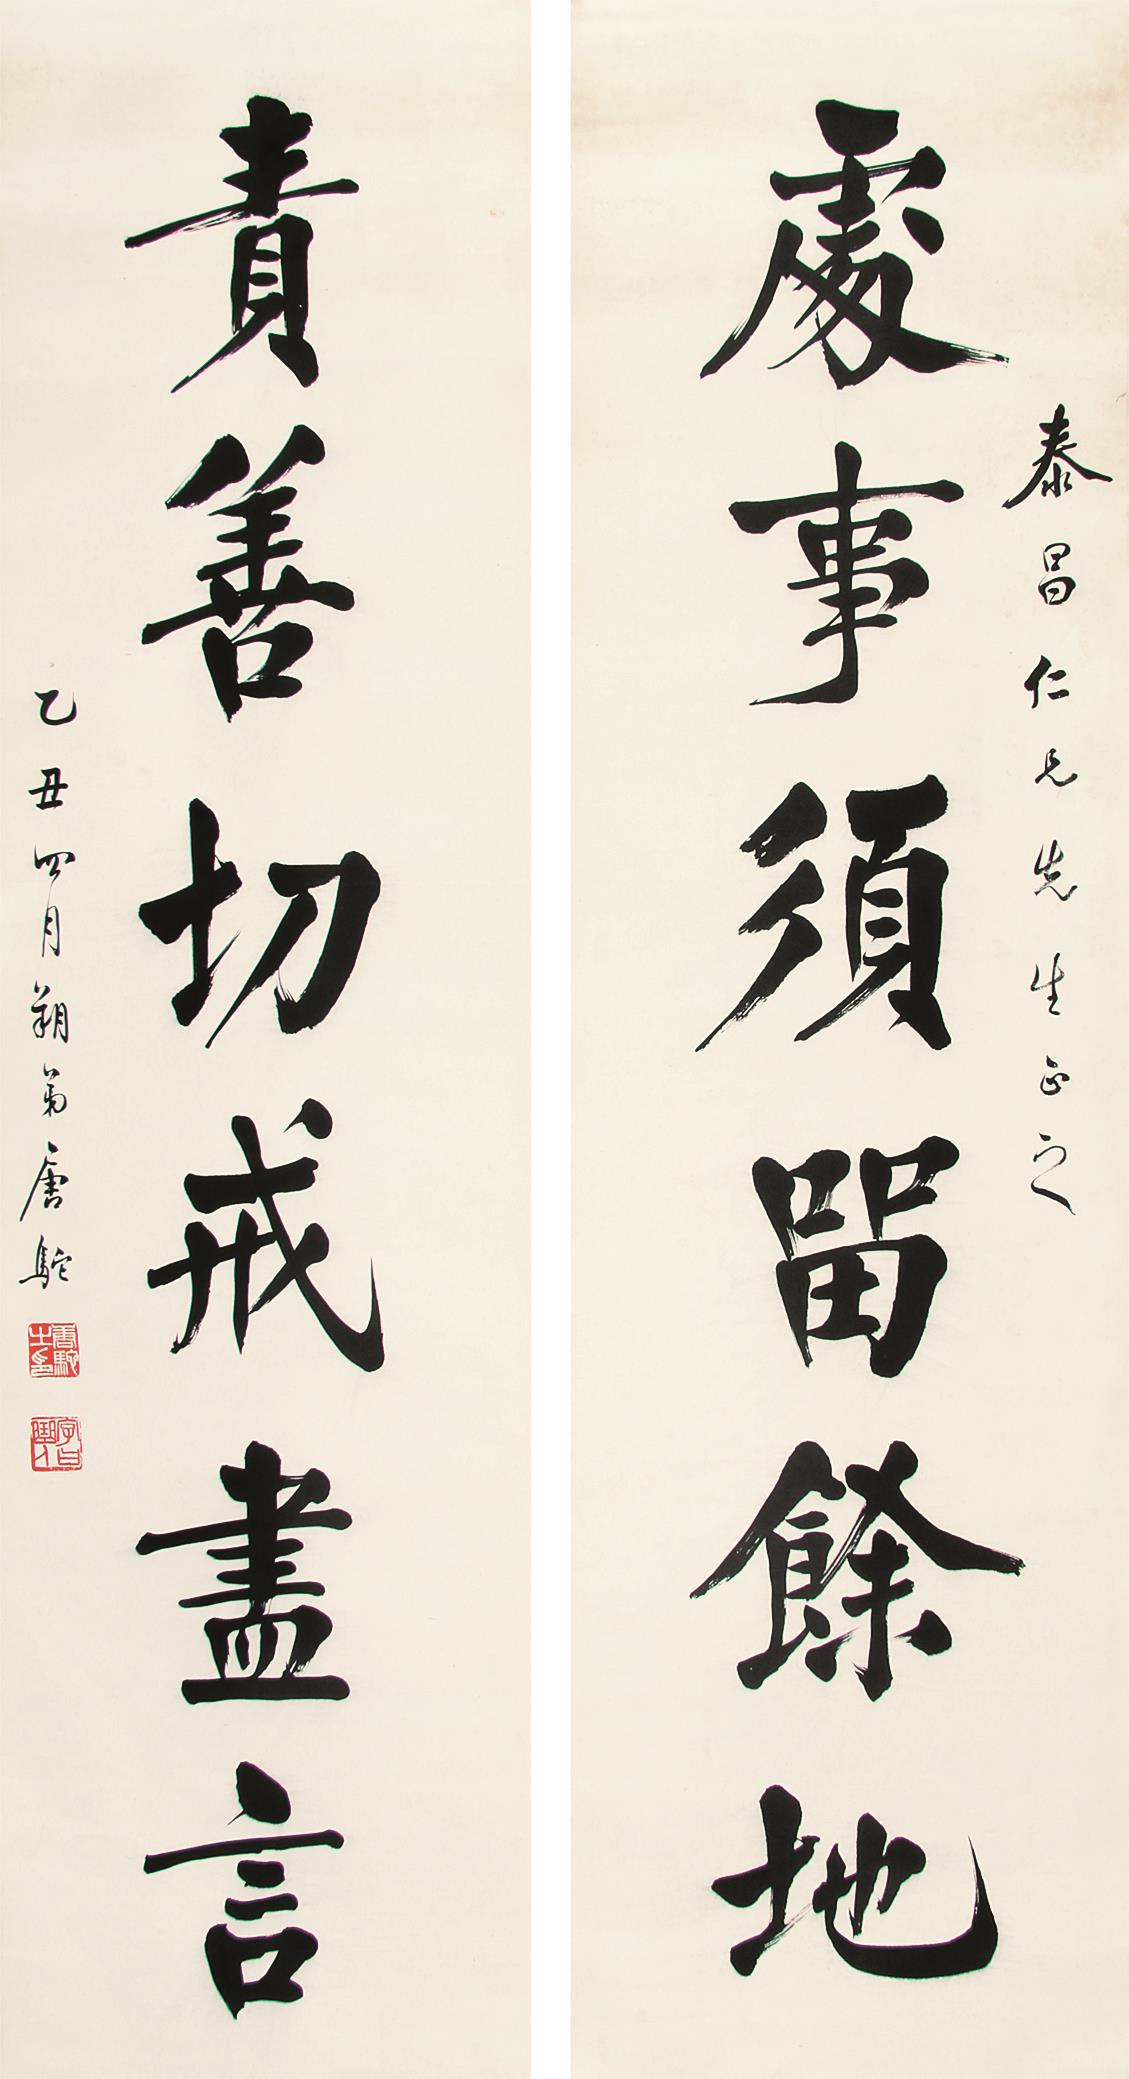 處事須留餘地
泰昌仁兄先生正之
責善切戒盡言
乙丑四月朔弟唐駝
唐駝之印